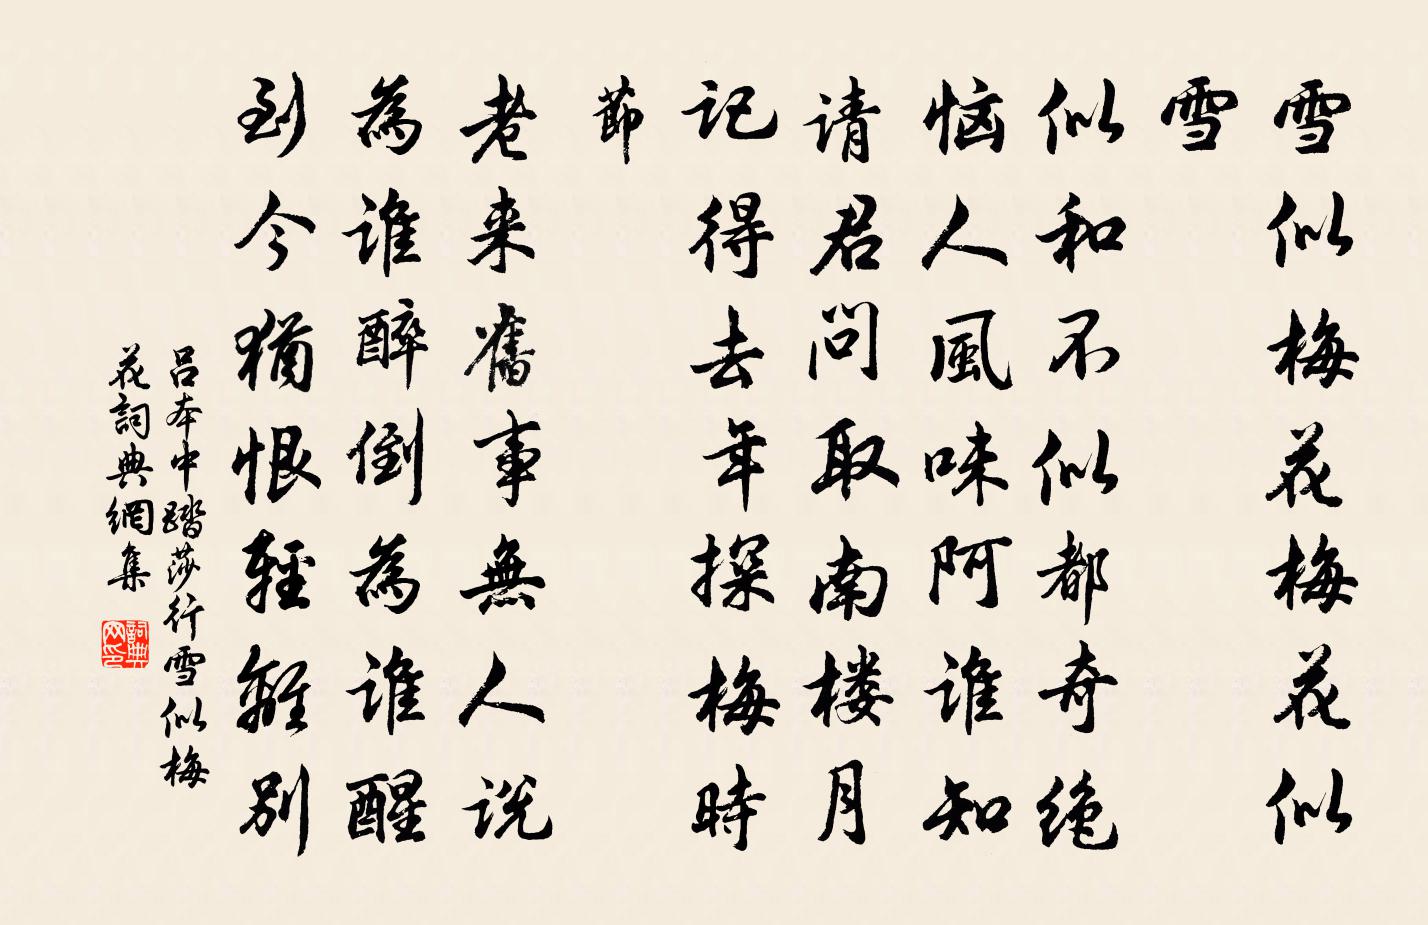 雪似梅花梅花似
雪
似和不似都奇绝
恼人風味阿谁知
请君问取南楼月
记得去年探梅時
節
老来舊事無人说
為谁醉倒為谁醒
到今猶恨輕離别
吕本中踏莎行雪似梅
花詞典網集
詞典
网印